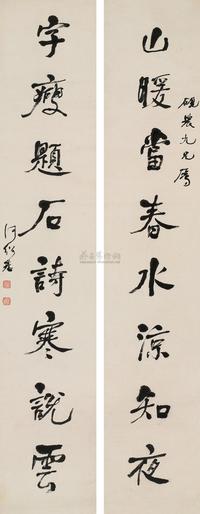 硯農九兄屬
山暖當春水涼知夜
字瘦題石詩寒說雲
何紹基